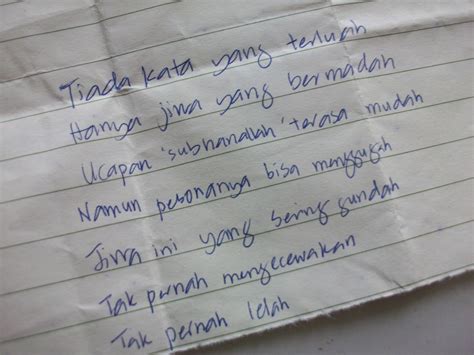 Tiada kata yang terluah
Hanya jiwa yang bermadah
Ucapan 'subhanallah' terasa mudah
Namun pesonanya bisa menggugah
Jiwa ini yang sering gundah
Tak pernah mengecewakan
Tak pernah lelah